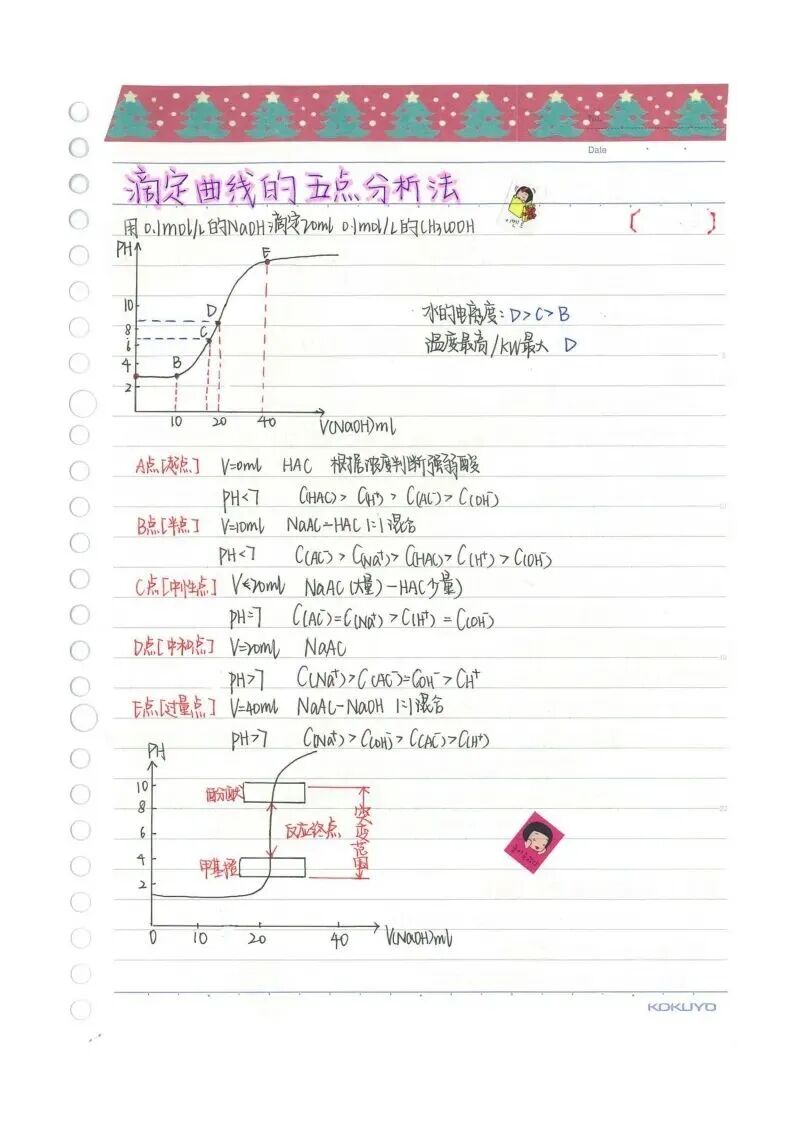 No.
Date
滴定曲线的五点分析法
用0.1mol/L的NaOH滴定20ml 0.1mol/L的CH3COOH
PH
E
10
8
6
4
2
D
C
B
10
20
40
V(NaOH)ml
水的电离度:D>C>B
温度最高/KW最大 D
A点[起点] V=0ml HAC 根据浓度判断强弱酸
PH<7 C(HAC)> C(H⁺)> C(AC⁻)> C(OH⁻)
B点[半点] V=10ml NaAC-HAC 1:1混合
PH<7 C(AC⁻)> C(Na⁺)> C(HAC)> C(H⁺)> C(OH⁻)
C点[中性点] V<20ml NaAC(大量)-HAC(少量)
PH=7 C(AC⁻)=C(Na⁺)>C(H⁺)=C(OH⁻)
D点[中和点] V=20ml NaAC
PH>7 C(Na⁺)>C(AC⁻)=COH⁻>CH⁺
E点[过量点] V=40ml NaAC-NaOH 1:1混合
PH>7 C(Na⁺)>C(OH⁻)>C(AC⁻)>C(H⁺)
PH
10
8
6
4
2
酚酞
反应终点
突变范围
甲基橙
0
10
20
40
V(NaOH)ml
KOKUYO